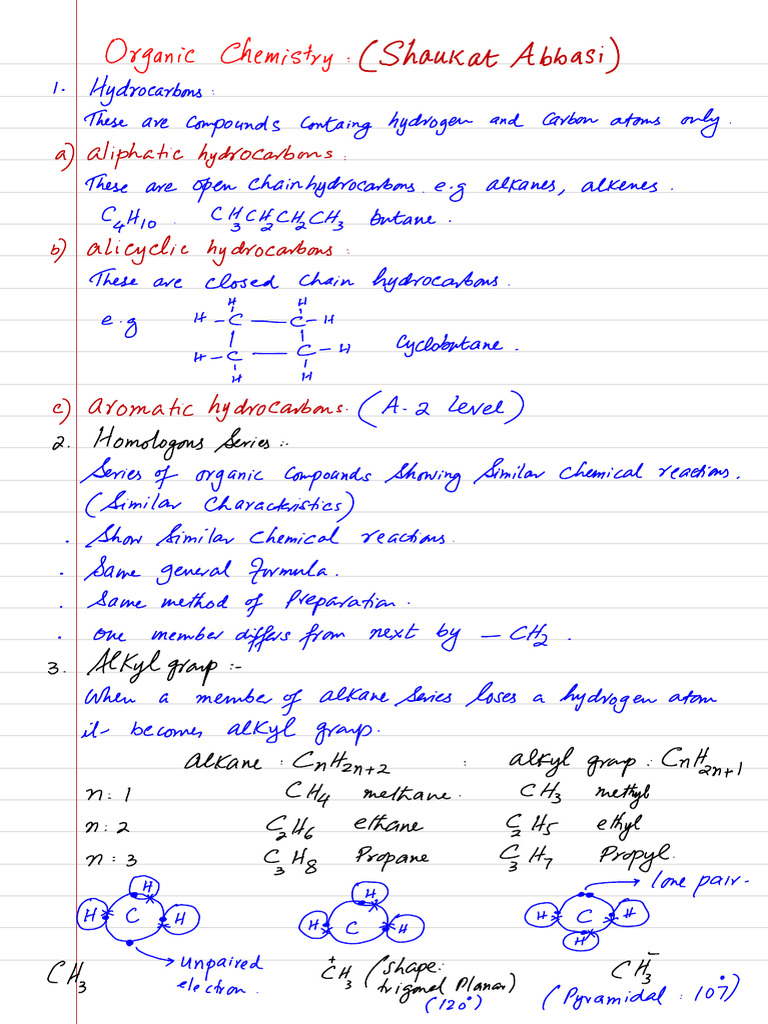 Organic Chemistry : (Shaukat Abbasi)
1. Hydrocarbons :
These are compounds containg hydrogen and carbon atoms only.
a) aliphatic hydrocarbons :
These are open chain hydrocarbons. e.g alkanes, alkenes.
C4H10 CH3CH2CH2CH3 butane.
b) alicyclic hydrocarbons :
These are closed chain hydrocarbons.
H H
e.g H – C — C – H
cyclobutane.
H – C — C – H
H H
c) aromatic hydrocarbons. (A-2 level)
2. Homologous Series :-
Series of organic compounds showing similar chemical reactions.
(Similar characteristics)
. Show similar chemical reactions.
. Same general formula.
. Same method of Preparation.
. one member differs from next by – CH2 .
3. Alkyl group :-
When a member of alkane series loses a hydrogen atom
it becomes alkyl group.
alkane : CnH2n+2 : alkyl group : CnH2n+1
n : 1 CH4 methane. CH3 methyl
n : 2 C2H6 ethane C2H5 ethyl
n : 3 C3H8 Propane C3H7 Propyl.
→ lone pair.
H H
H C H H C H H C H
H
→ unpaired electron.
CH3 +CH3 (shape: trigonal Planar) CH3–
(120°) (Pyramidal : 107°)